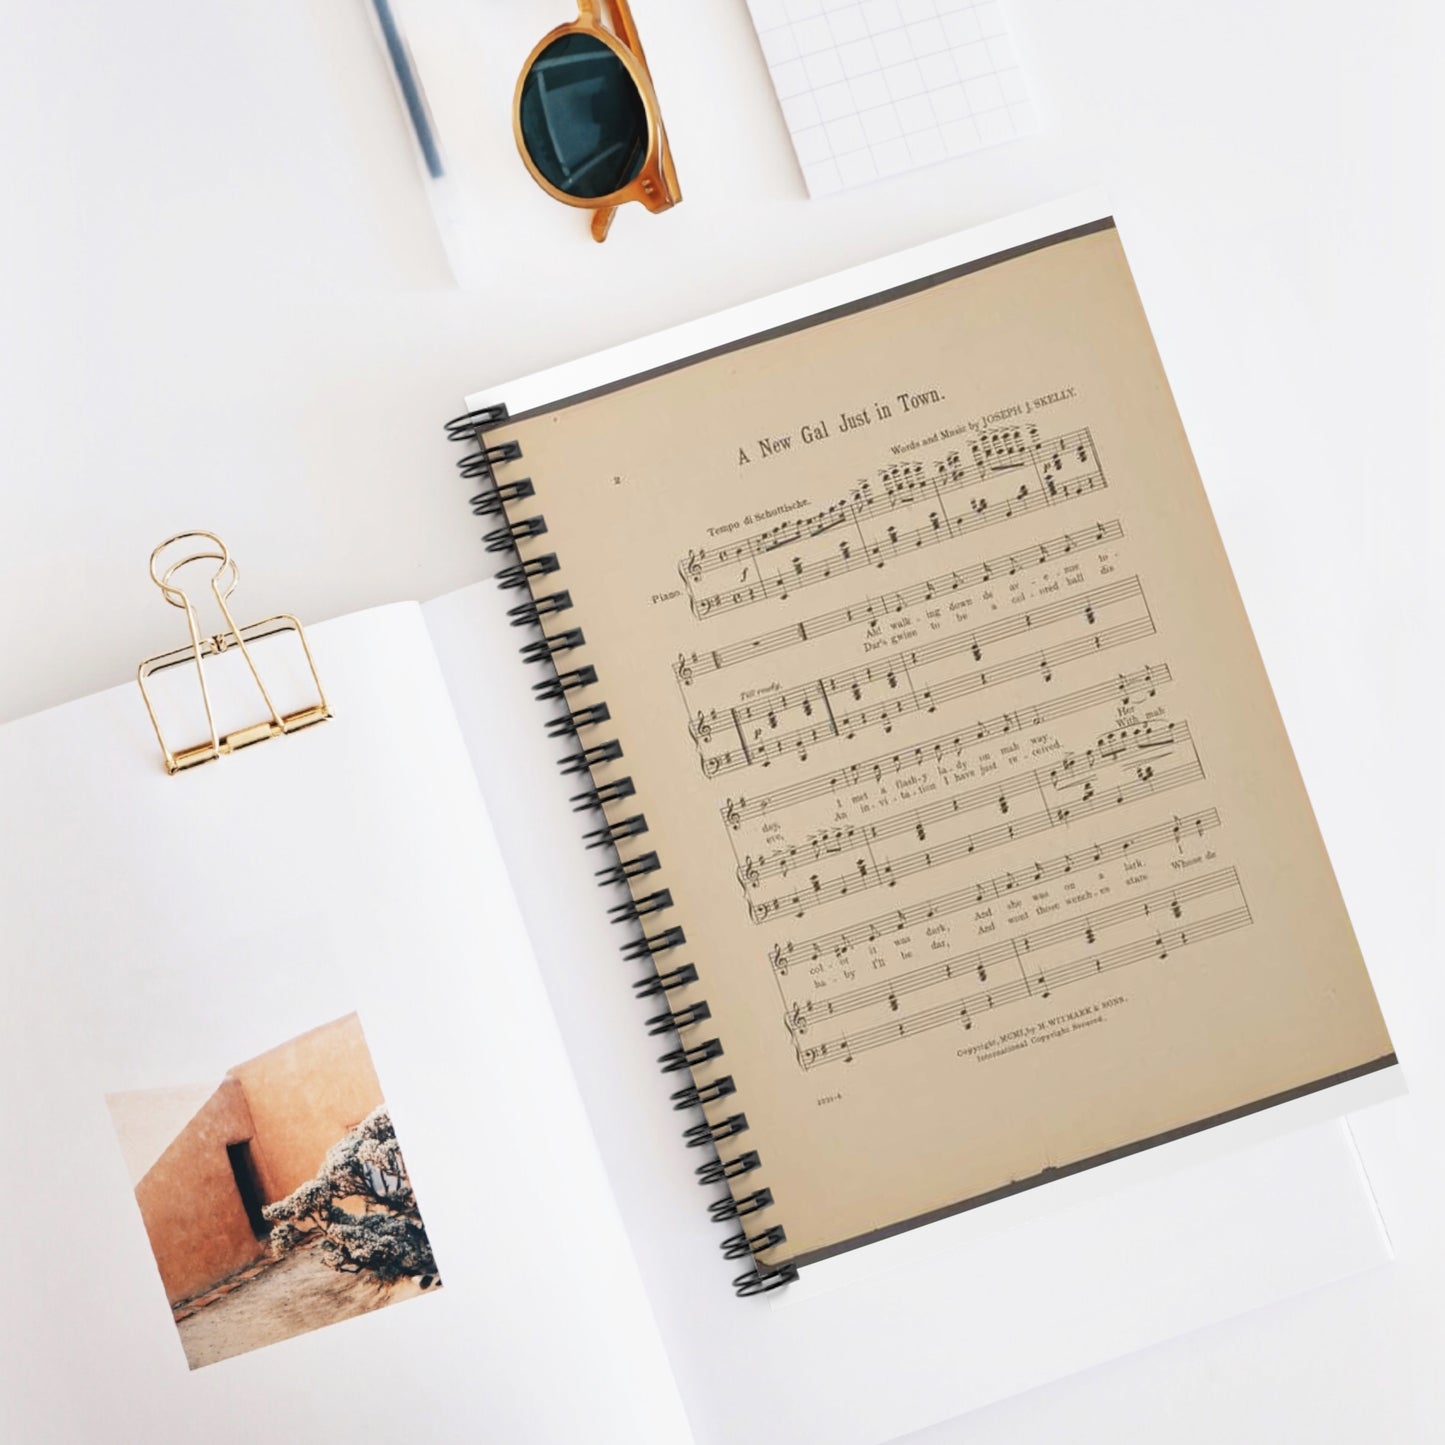 A New Gal Just in Town.
2
Words and Music by JOSEPH J. SKELLY.
Tempo di Schottische.
Piano.
f
p
Ah! walk - ing down de av - e - nue to -
Dar's gwine to be a col - ored ball dis
Till ready.
p
Her
With mah
day, I met a flash-y la-dy on mah way.
ere, An in-vi-ta-tion I have just re-ceived.
col - or it was dark, And she was on a lark. I
ba - by I'll be dar, And wont those wench-es stare Whose de
Copyright, MCMI, by M. WITMARK & SONS.
International Copyright Secured.